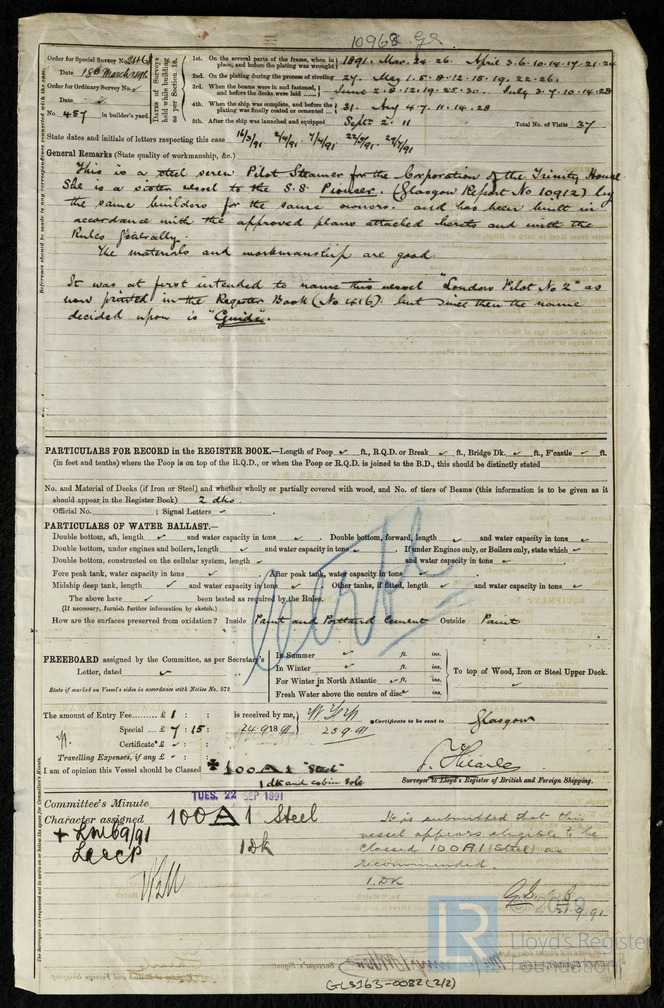 10963 Gls
Order for Special Survey No. 2468
Date 18th March 1891
Order for Ordinary Survey No.
Date
No. 457 in builder's yard.
Dates of Surveys held while building as per Section 18.
1st. On the several parts of the frame, when in place, and before the plating was wrought 1891. Mar. 24. 26. April 3. 6. 10. 14. 17. 21. 24
2nd. On the plating during the process of riveting 27. May 1. 5. 8. 12. 15. 19. 22. 26.
3rd. When the beams were in and fastened, and before the decks were laid June 2. 8. 12. 19. 25. 30. July 3. 7. 10. 14. 28
4th. When the ship was complete, and before the plating was finally coated or cemented 31. Aug 4. 7. 11. 14. 28
5th. After the ship was launched and equipped Sept. 2. 11
Total No. of Visits 37
State dates and initials of letters respecting this case 16/3/91 2/4/91 7/4/91
General Remarks (State quality of workmanship, &c.)
This is a steel screw Pilot Steamer for the Corporation of the Trinity House
She is a sister vessel to the S.S. Pioneer. (Glasgow Report No 10912) by
the same builders for the same owners. and has been built in
accordance with the approved plans attached hereto and with the
Rules generally.
The materials and workmanship are good
It was at first intended to name this vessel "London Pilot No 2" as
now printed in the Register Book (No 416). but since then the name
decided upon is "Guide".
PARTICULARS FOR RECORD in the REGISTER BOOK.—Length of Poop ft., R.Q.D. or Break ft., Bridge Dk. ft., F'castle ft.
(in feet and tenths) where the Poop is on top of the R.Q.D., or when the Poop or R.Q.D. is joined to the B.D., this should be distinctly stated
No. and Material of Decks (if Iron or Steel) and whether wholly or partially covered with wood, and No. of tiers of Beams (this information is to be given as it
should appear in the Register Book) 2 dks.
Official No. ; Signal Letters
PARTICULARS OF WATER BALLAST.—
Double bottom, aft, length and water capacity in tons . Double bottom, forward, length and water capacity in tons
Double bottom, under engines and boilers, length and water capacity in tons . If under Engines only, or Boilers only, state which
Double bottom, constructed on the cellular system, length and water capacity in tons
Fore peak tank, water capacity in tons After peak tank, water capacity in tons
Midship deep tank, length and water capacity in tons Other tanks, if fitted, length and water capacity in tons
The above have been tested as required by the Rules.
(If necessary, furnish further information by sketch.)
How are the surfaces preserved from oxidation? Inside Paint and Portland Cement Outside Paint
FREEBOARD assigned by the Committee, as per Secretary's
Letter, dated
State if marked on Vessel's sides in accordance with Notice No. 572
In Summer ft. ins.
In Winter ft. ins.
For Winter in North Atlantic ft. ins.
Fresh Water above the centre of disc ins.
To top of Wood, Iron or Steel Upper Deck.
The amount of Entry Fee £ 1 : :
Special £ 7 : 15 :
Certificate £ :
Travelling Expenses, if any £ :
is received by me,
24.9.1891
25.9.91
Certificate to be sent to Glasgow
I am of opinion this Vessel should be Classed ✠ 100A1 "Steel"
1 dk and cabin sole
Surveyor to Lloyd's Register of British and Foreign Shipping.
Committee's Minute TUES. 22 SEP 1891
Character assigned 100A1 Steel
+ LMC 9/91
1 Dk
It is submitted that this
vessel appears eligible to be
classed 100A1 (Steel) as
recommended.
1.DK
21.9.91
LR
© 2019
Lloyd's Register
Foundation
GLS163-0082(2/2)